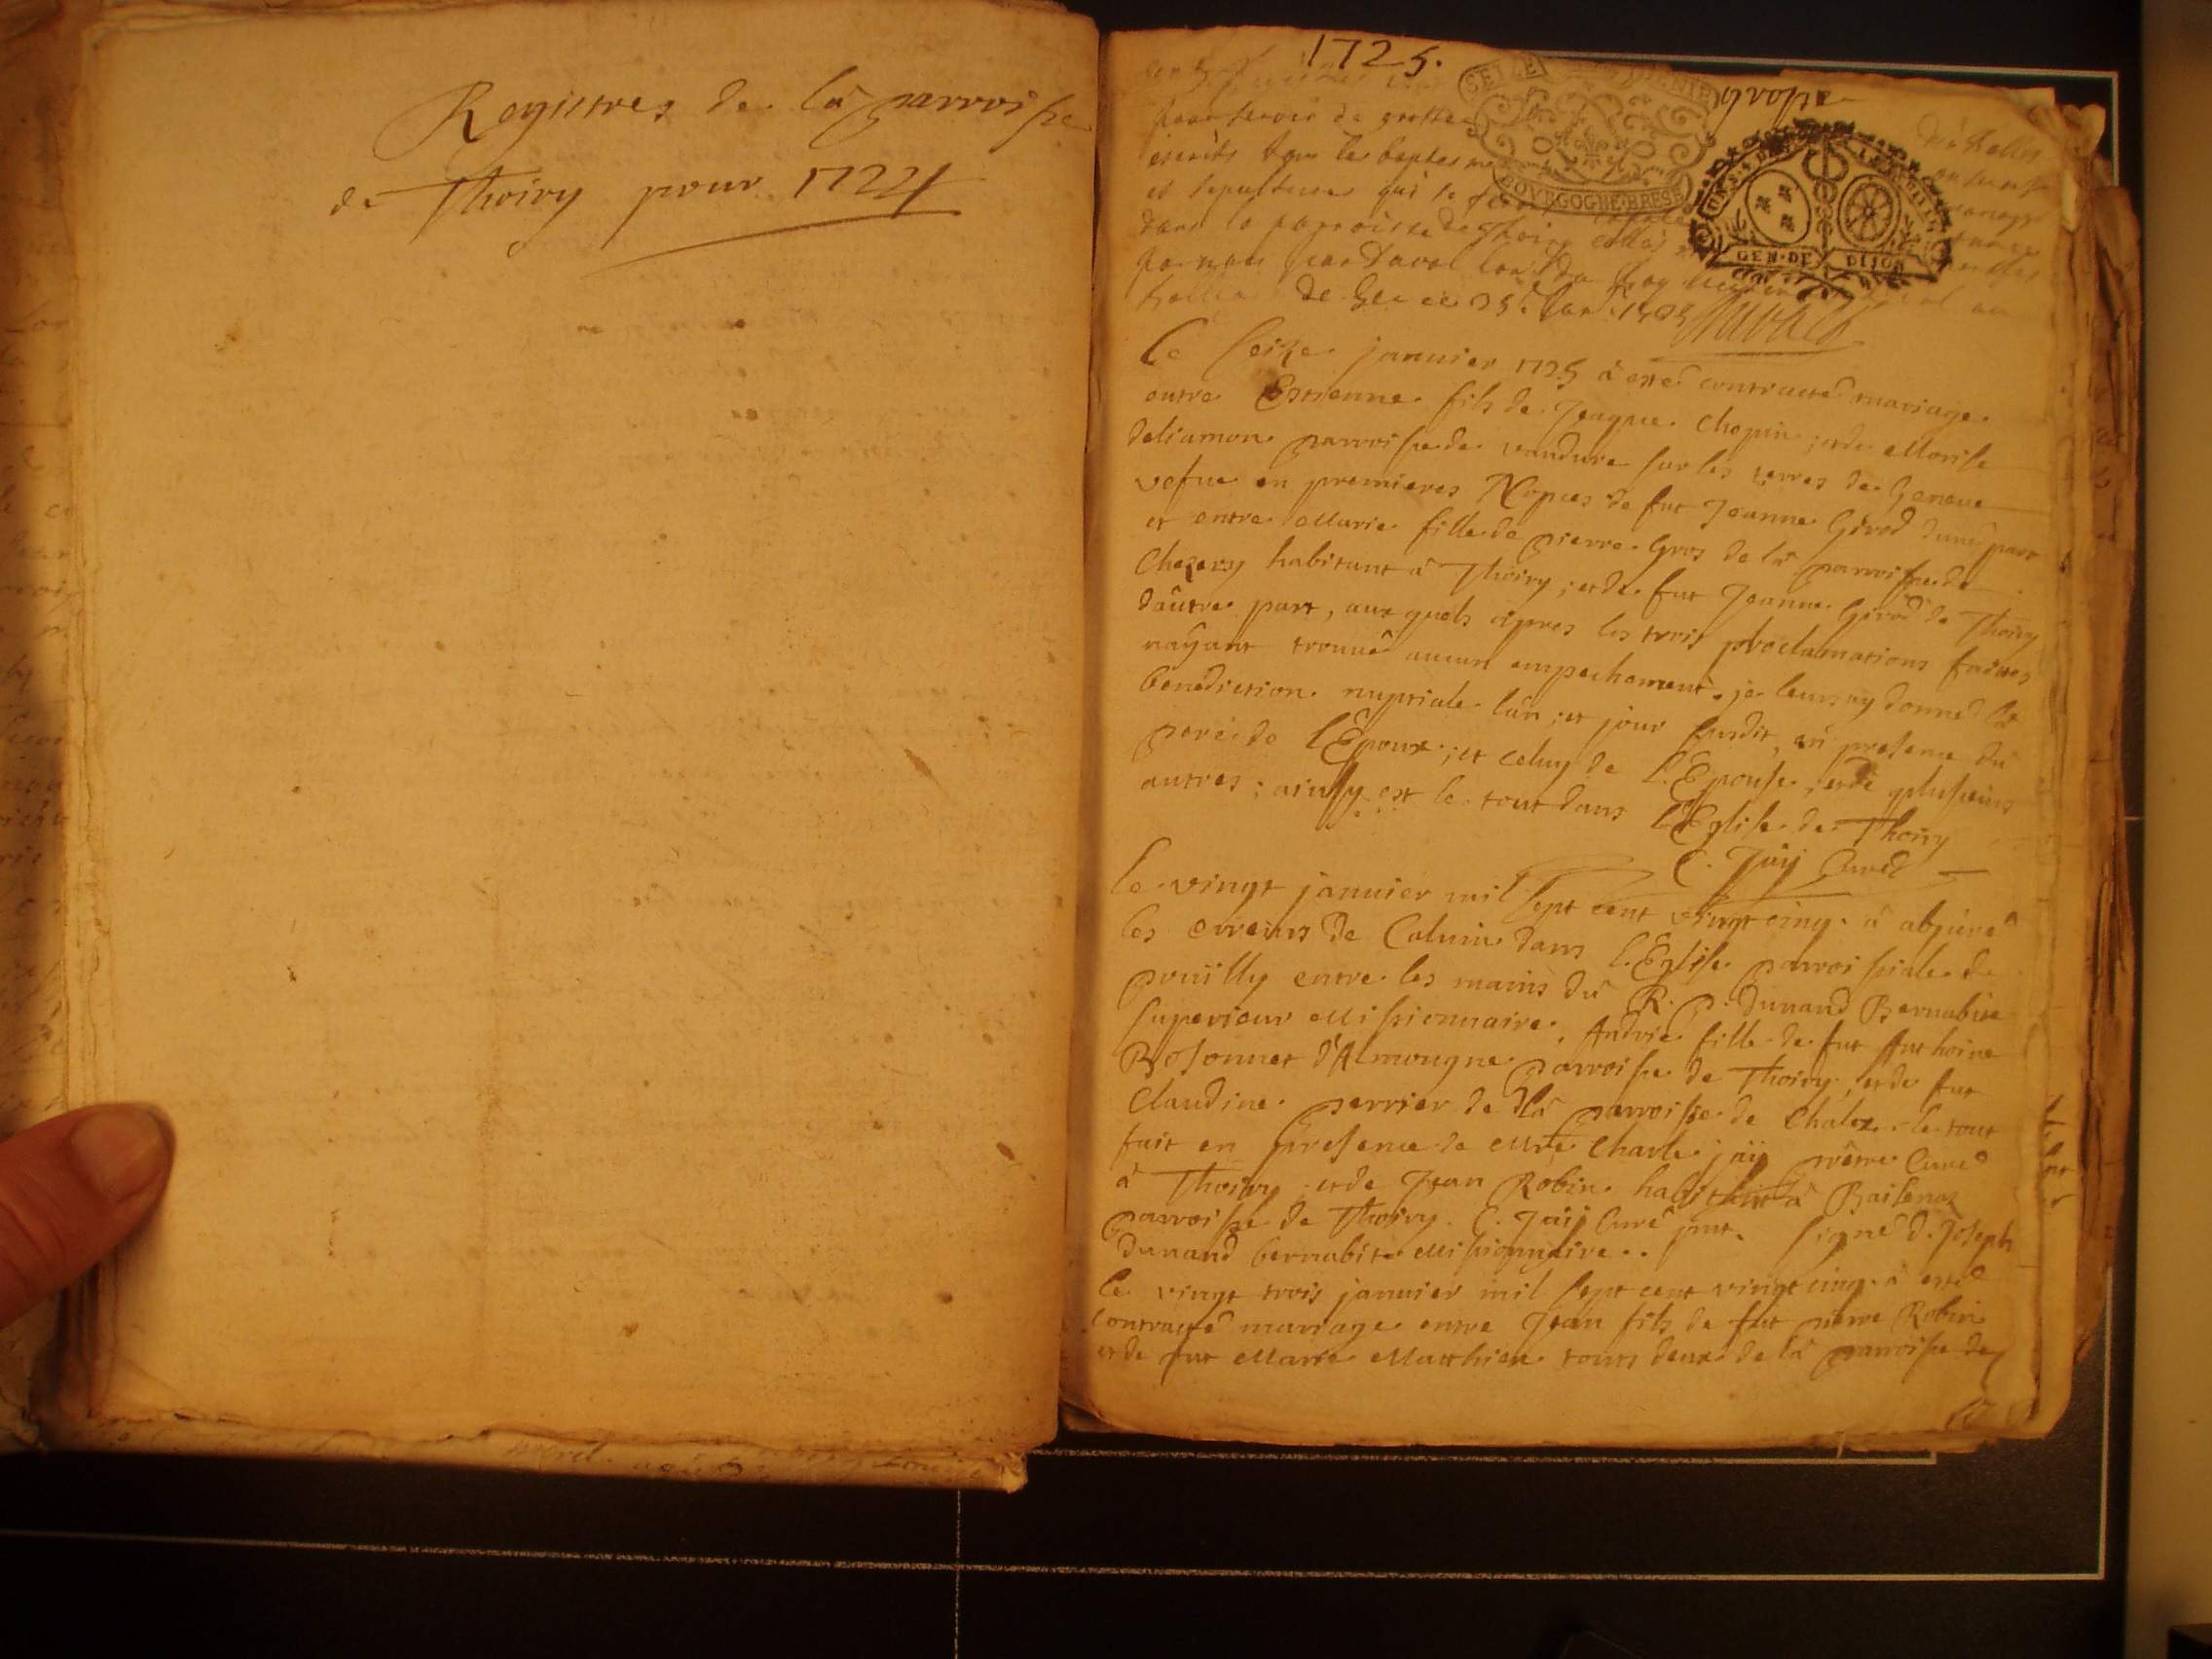 Registres de là parroisse
de Thoiry pour 1724
1725.
SEILE
BOVRGOGNE·BRESSE
GEN·DE DIJON
pour servir de
escrits tous les baptesmes
et sepultures qui se
dans la parroisse de Thoiry
par nous
de Gex ce 25e Janr 1725
Le seize janvier 1725 à esté contracté mariage
entre Estienne fils de Jaque Chopin ; et de Morise
deliamon parroisse de vandure sur les terres de Geneue
vefue en premieres Nopces de fut Jeanne Girod dune part
et entre Marie fille de pierre Gros de là parroisse de
Chezery habitant à Thoiry ; et de fut Jeanne Girod de Thoiry
dautre part, aux quels apres les trois proclamations faites
nayant trouué aucun empechement je leurs ay donné là
benediction nuptiale lan ; et jour susdit, en presence du
pere de l'Epoux ; et celuy de l'Epouse, et de plusieurs
autres : ainsy est le tout dans l'Eglise de Thoiry
C. Jaÿ Curé
le vingt janvier mil sept cent vingt cinq à abjuré
les erreurs de Caluin dans l'Eglise parroissiale de
pouilly entre les mains du R. P. Dunand Bernabite
superieur Missionnaire, Andrie fille de fut Anthoine
Bosonnet d'Almougne parroisse de Thoiry ; et de fut
Claudine perrier de là parroisse de Chalex le tout
fait en presence de Mre Charle jaÿ prêtre Curé
à Thoiry et de Jean Robin habitant à Baisenaz
parroisse de Thoiry. C. Jaÿ Curé pnt. signé d. Joseph
Dunand bernabite Missionnaire..
le vingt trois janvier mil sept cent vingt cinq à esté
contracté mariage entre Jean fils de fut pierre Robin
et de fut Marie Matthieu touts deux de là parroisse de